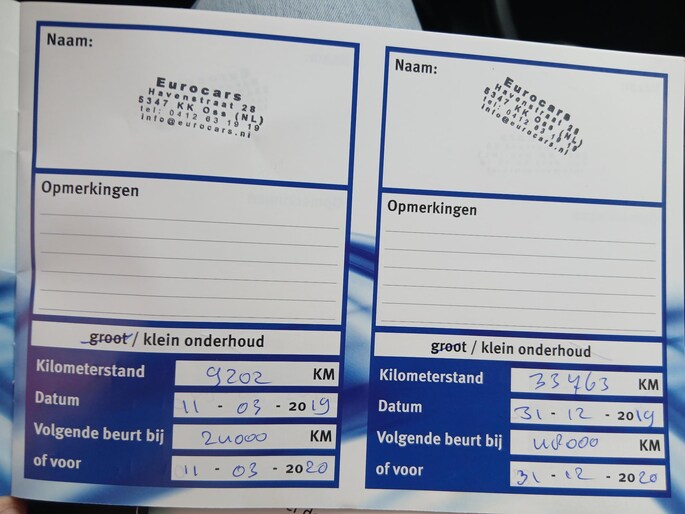 Naam:
Eurocars
Havenstraat 28
5347 KK Oss (NL)
tel: 0412 63 19 19
info@eurocars.nl
Opmerkingen
groot / klein onderhoud
Kilometerstand 9202 KM
Datum 11 - 03 - 2019
Volgende beurt bij 24000 KM
of voor 11 - 03 - 2020
Naam:
Eurocars
Havenstraat 28
5347 KK Oss (NL)
tel: 0412 63 19 19
info@eurocars.nl
Opmerkingen
groot / klein onderhoud
Kilometerstand 33463 KM
Datum 31 - 12 - 2019
Volgende beurt bij 48000 KM
of voor 31 - 12 - 2020